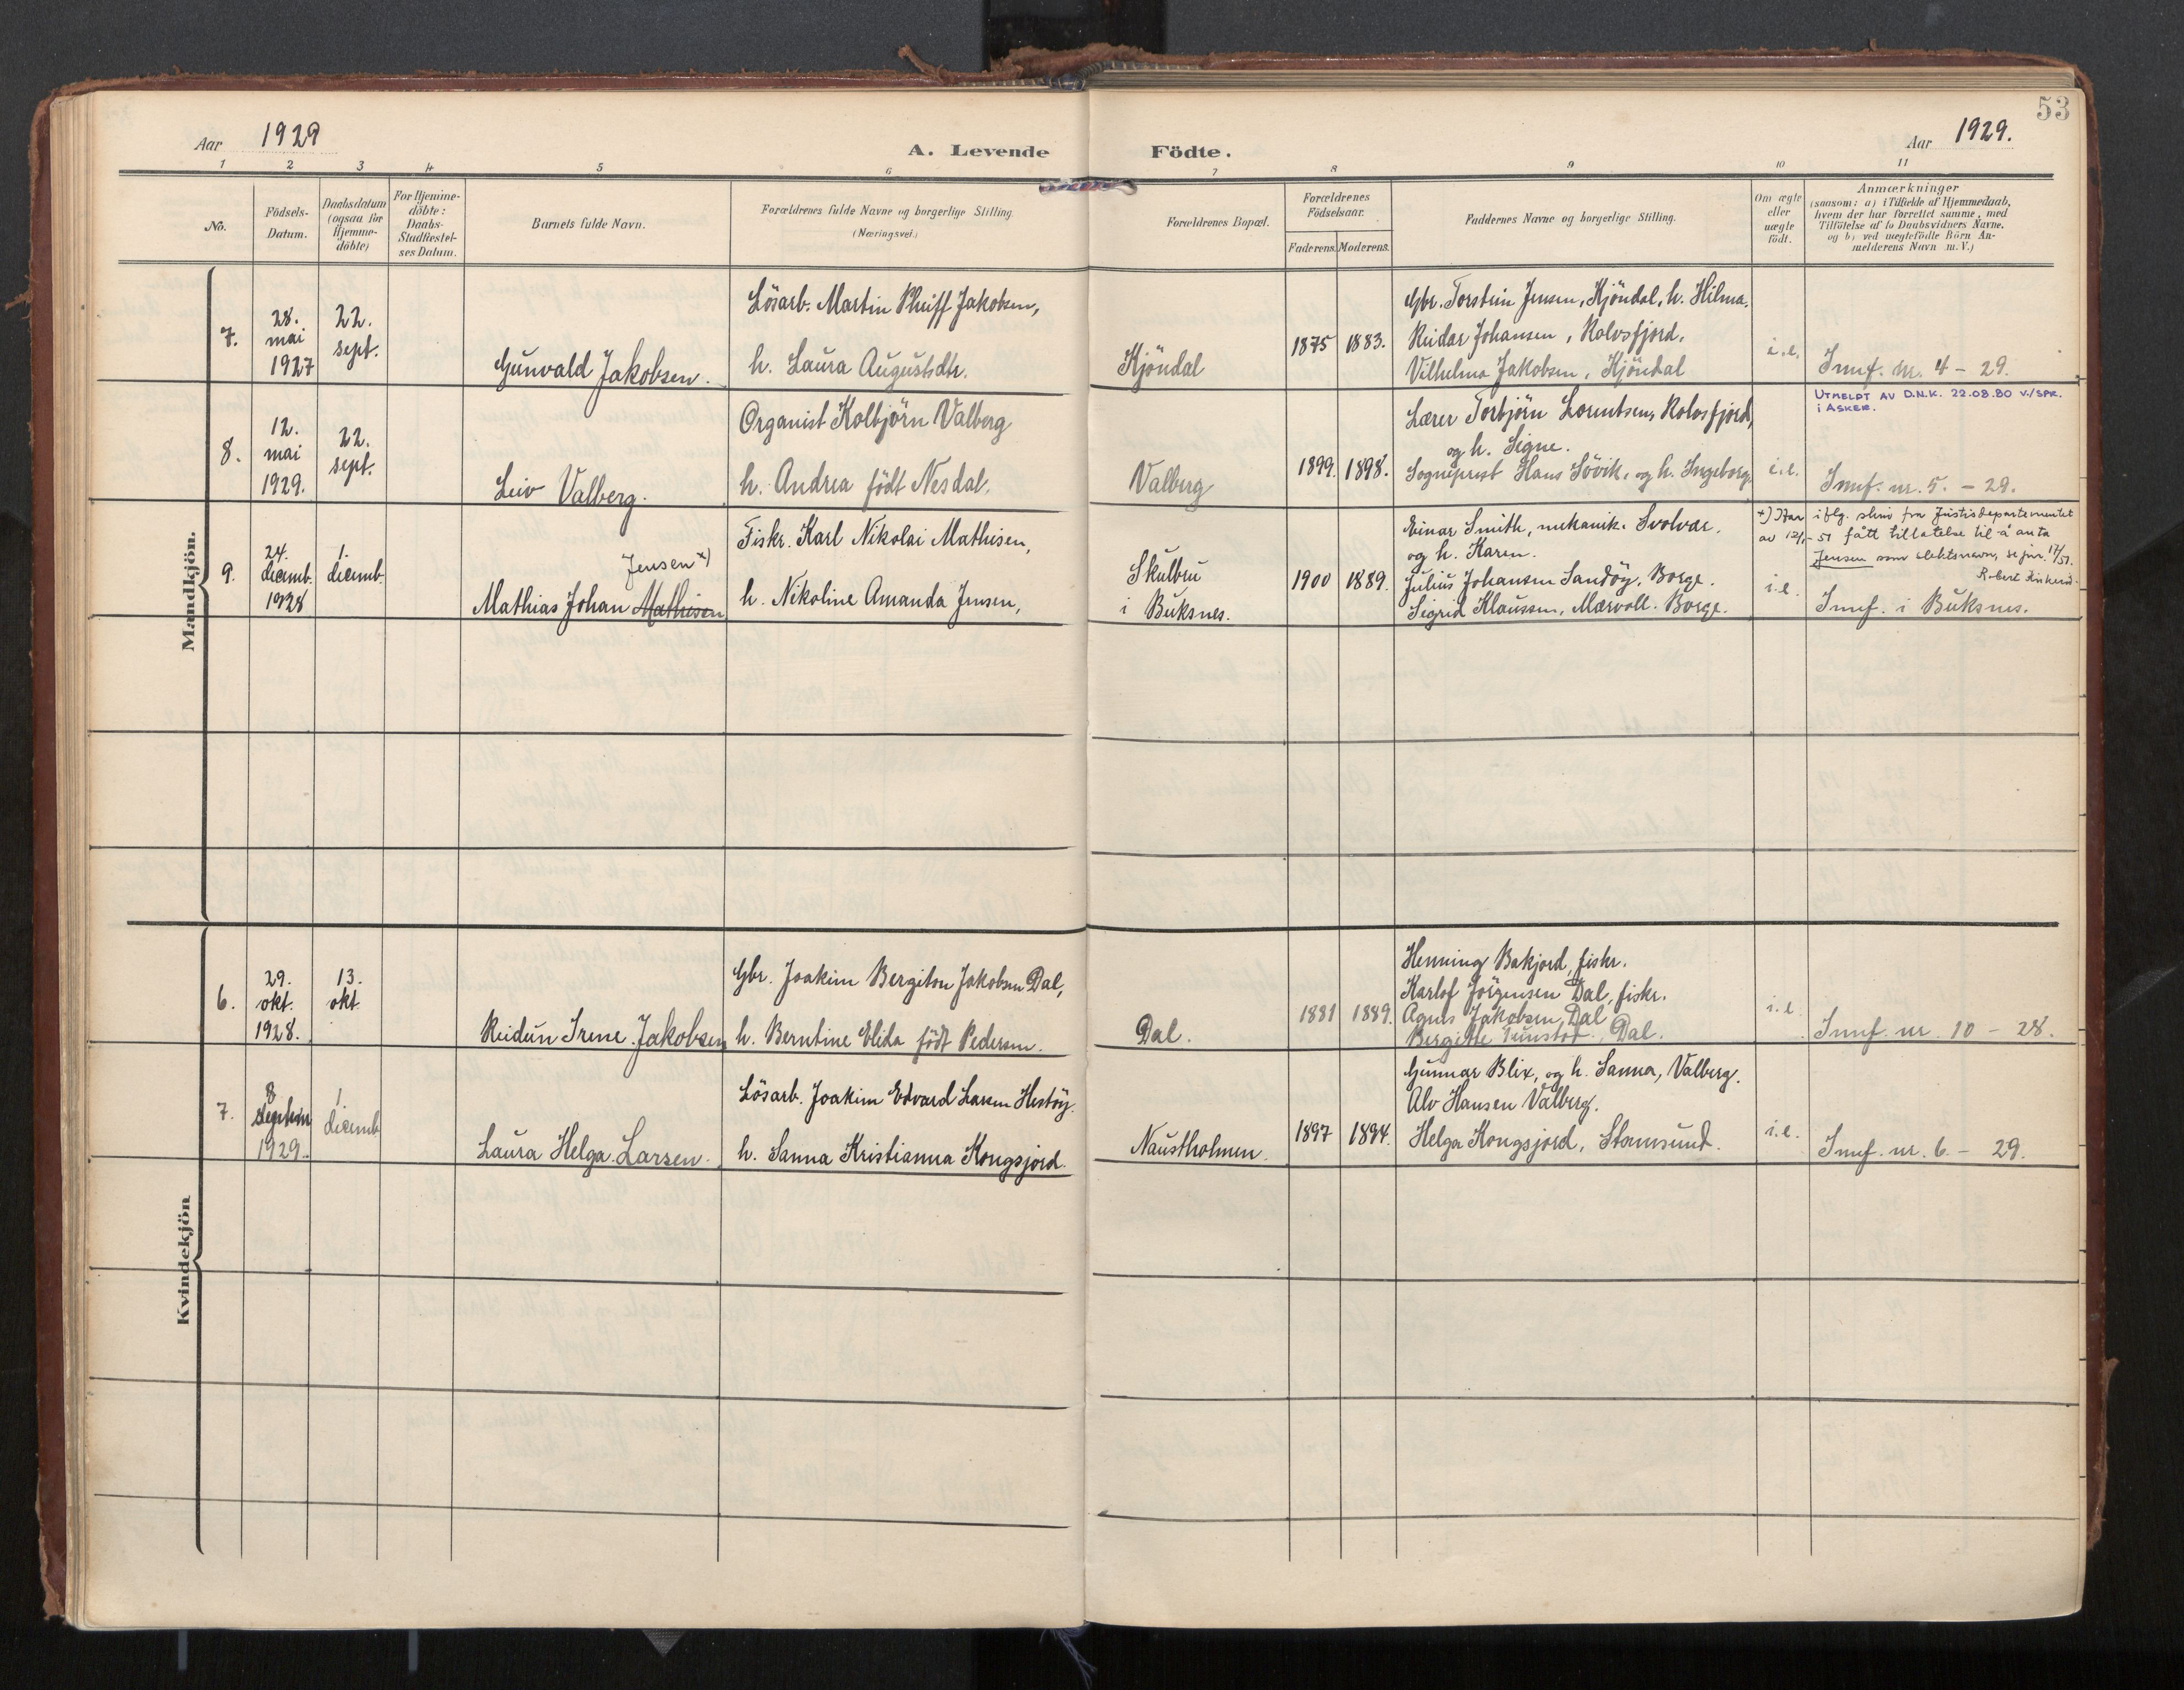 53
Aar 1929
A. Levende Födte.
Aar 1929.
1 2 3 4 5 6 7 8 9 10 11
No.
Födsels-
Datum.
Daabsdatum
(ogsaa for
Hjemme-
döbte)
For Hjemme-
döbte:
Daabs-
Stadfæstel-
ses Datum.
Barnets fulde Navn.
Forældrenes fulde Navne og borgerlige Stilling.
(Næringsvei.)
Forældrenes Bopæl.
Forældrenes
Födselsaar.
Faderens. Moderens.
Faddernes Navne og borgerlige Stilling.
Om ægte
eller
uægte
födt.
Anmærkninger
(saasom: a) i Tilfælde af Hjemmedaab,
hvem der har forrettet samme, med
Tilföielse af to Daabsvidners Navne.
og b) ved uægtefödte Börn An-
melderens Navn m. V.)
Mandkjön.
7.
28.
mai
1927
22.
sept.
Gunvald Jakobsen.
Lösarb. Martin Jakobsen,
h. Laura Augustsdtr.
Kjöndal
1875 1883.
Gbr. Torstein Jensen, Kjöndal, h. Hilma.
Reidar Johansen, Rolvsfjord.
Vilhelma Jakobsen, Kjöndal
i.e.
Innf. nr. 4 - 29.
8.
12.
mai
1929.
22.
sept.
Leiv Valberg.
Organist Kolbjörn Valberg
h. Andrea födt Nesdal.
Valberg
1899. 1898.
Lærer Torbjörn Lorentsen, Rolvsfjord,
og h. Signe.
Sogneprest Hans Lövik, og h. Ingeborg.
i.e.
UTMELDT AV D.N.K. 22.08.80 V./SPR.
I ASKER.
Innf. nr. 5. - 29.
9.
24.
decemb.
1928
1.
decemb.
Jensen x)
Mathias Johan Mathisen
Fiskr. Karl Nikolai Mathisen,
h. Nikoline Amanda Jensen,
Skulbru
i Buksnes.
1900 1889.
Einar Smith, mekanik. Svolvær.
og h. Karen.
Julius Johansen Sandöy, Borge.
Sigrid Klaussen, Mærvoll. Borge.
i.e.
x) Har iflg. skriv fra Justisdepartementet
av 12/1-51 fått tillatelse til å anta
Jensen som slektsnavn, se jnr. 17/51.
Robert
Innf. i Buksnes.
Kvindekjön
6.
29.
okt.
1928.
13.
okt.
Reidun Irene Jakobsen
Gbr. Joakim Bergiton Jakobsen Dal,
h. Berntine Elida födt Pedersen.
Dal.
1881 1889.
Henning Bakjord, fiskr.
Karlof Jörgensen Dal, fiskr.
Agnes Jakobsen, Dal
Bergitte Dal.
i.e.
Innf. nr. 10 - 28.
7.
8
septem
1929.
1.
decemb
Laura Helga Larsen.
Lösarb. Joakim Edvard Larsen Hestöy.
h. Sanna Kristianna Kongsjord.
Naustholmen.
1897 1894.
Gunnar Blix, og h. Sanna, Valberg.
Alv Hansen Valberg.
Helga Kongsjord, Stamsund.
i.e.
Innf. nr. 6. - 29.